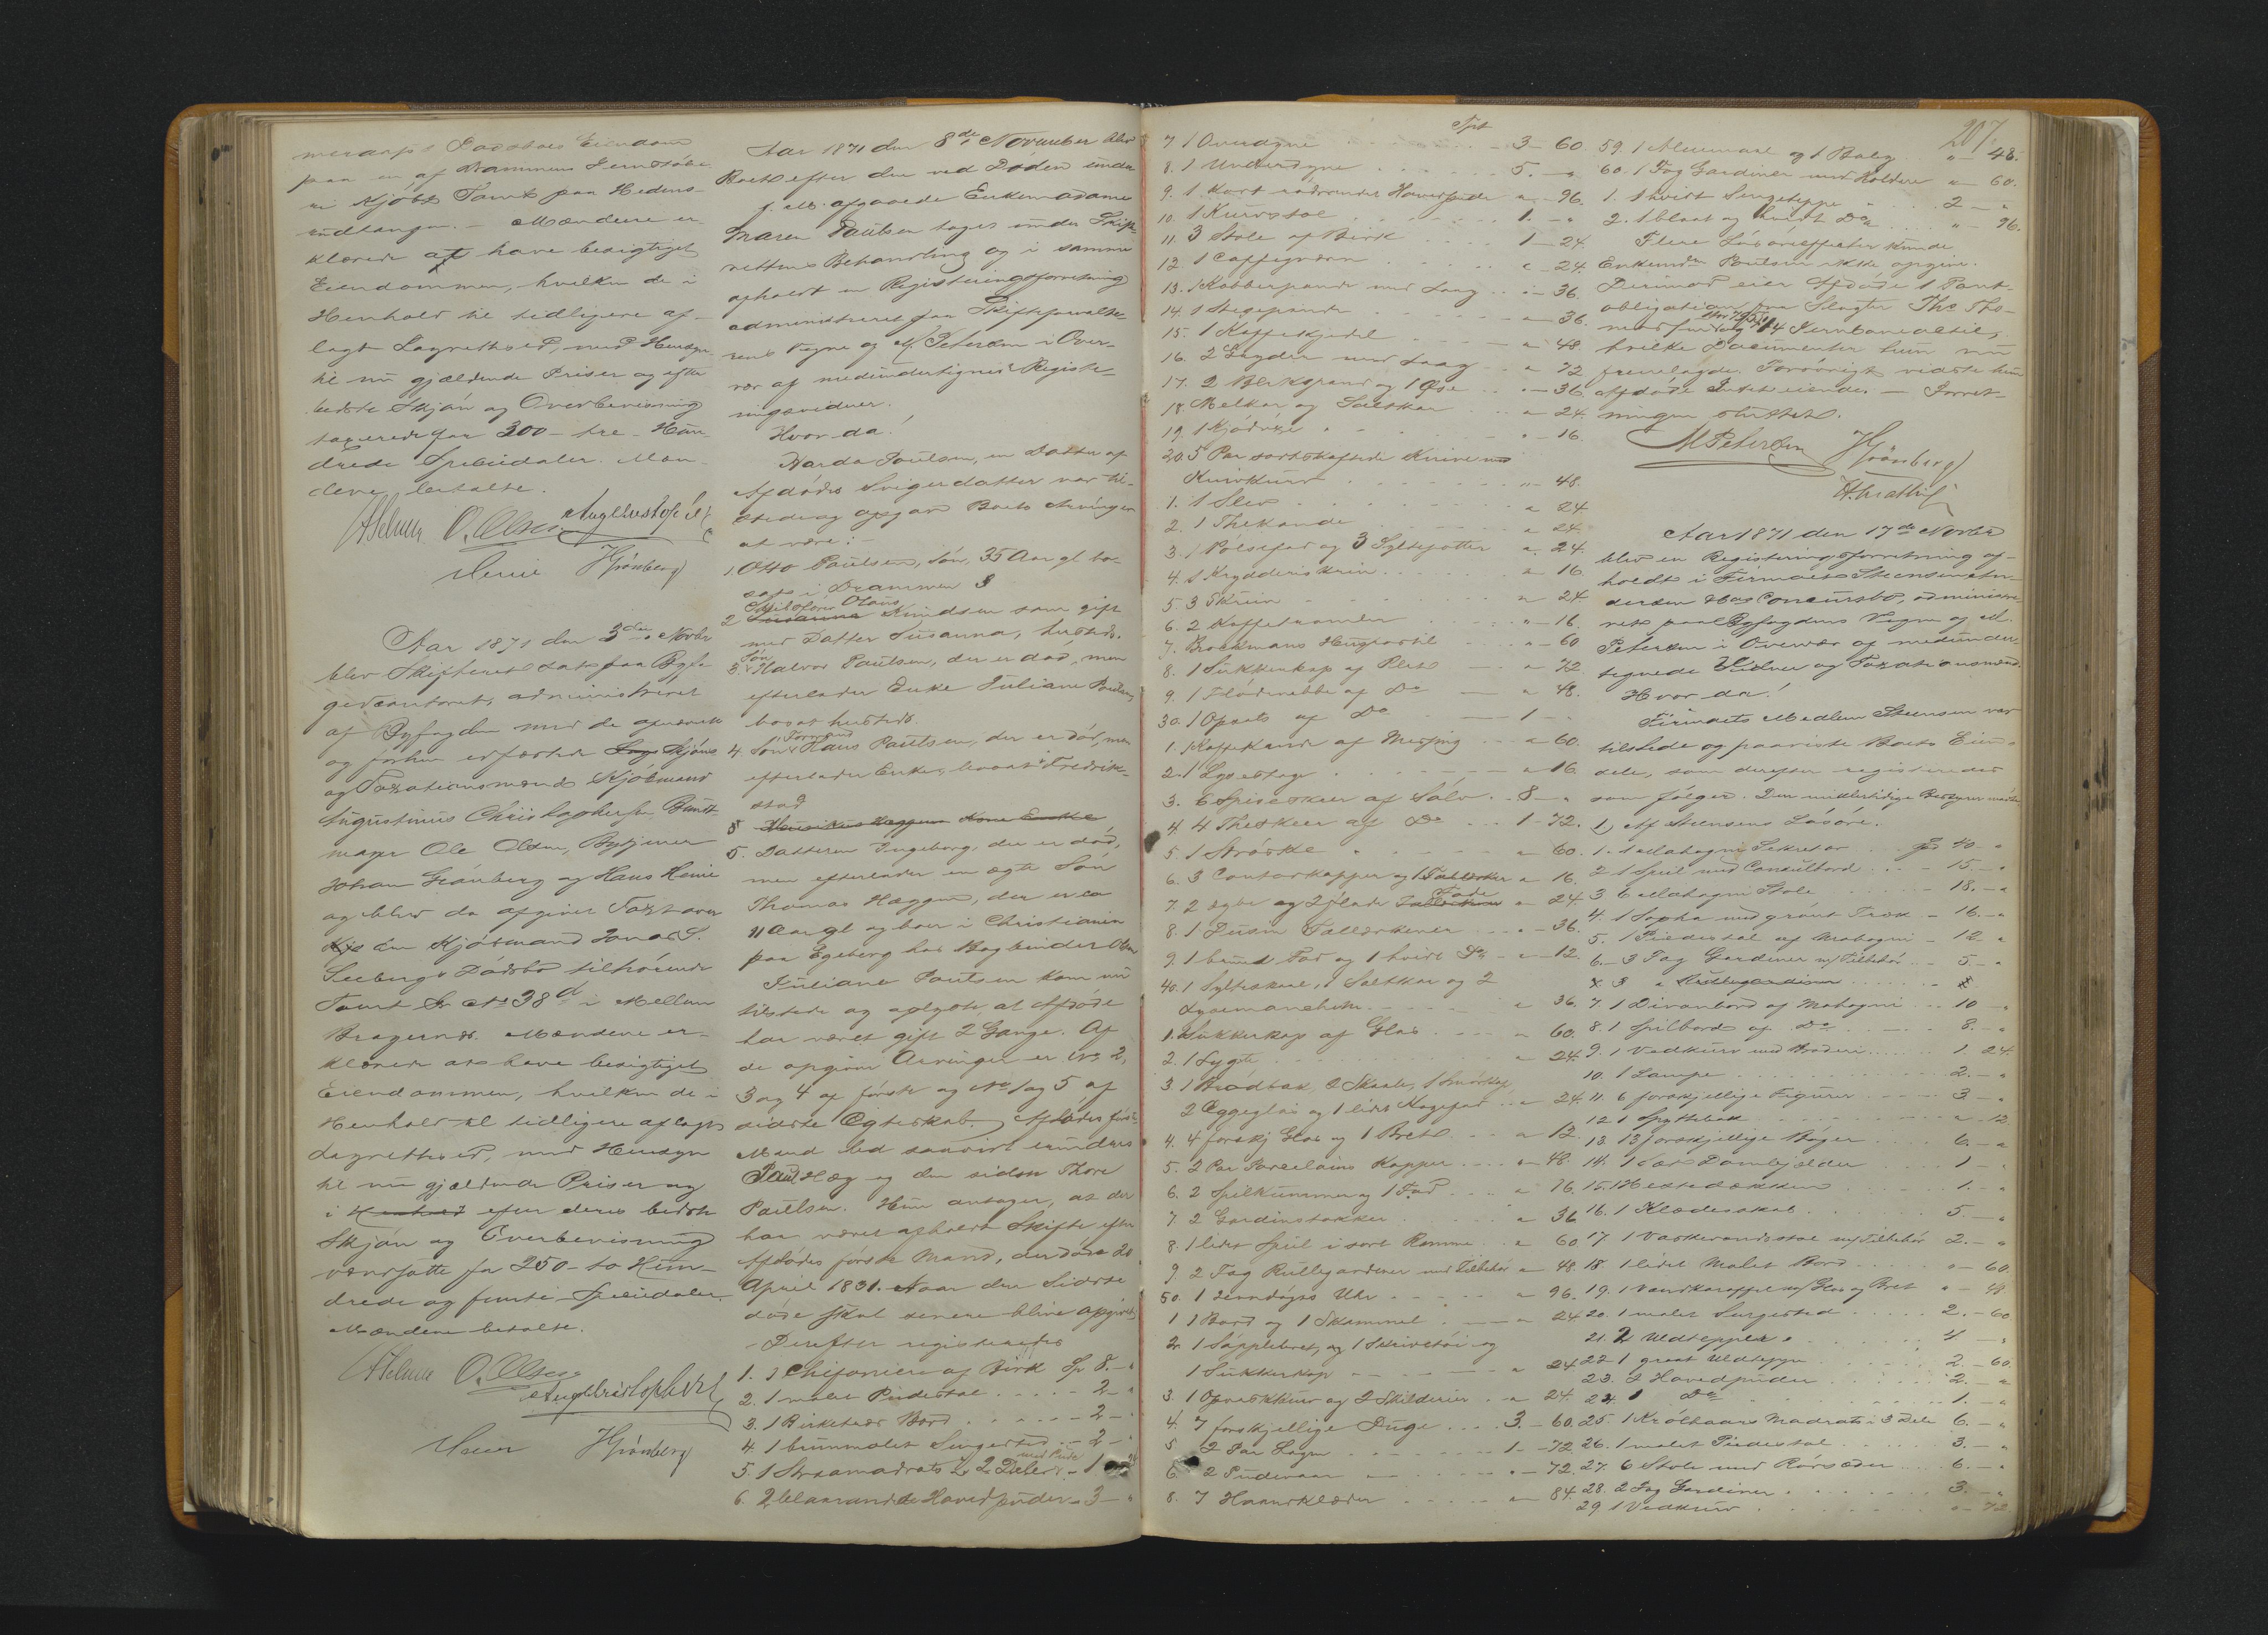 paa en af Drammens
Kjøbt Tomt paa Hedens-
rudtangen. — Mændene er
klærede at have besigtiget
Eiendommen, hvilken de i
Henhold til tidligere af-
lagt Lagretsed, med Hensyn
til nu gjældende Priser og efter
bedste Skjøn og Overbevisning
taxerede for 300 - tre - Hun-
drede Speciedaler. Mæn-
dene betalte.
O. Olsen
Heine HGrønberg
Aar 1871 den 3die Novbr
blev Skifteret sat paa Byfo-
gedcontoret, administreret
af Byfogden med de opnævnte
og forhen edfæstede Skjøns
og Taxationsmænd Kjøbmand
Augustinus Christophersen, Bundt-
mager Ole Olsen, Bytjener
Johan Grønberg og Hans Heine
og blev da afgivet Taxt over
en Kjøbmand Jonas S.
Seebergs Dødsbo tilhørende
Tomt No 38 d i Mellem
Bragernes. Mændene er-
klærede at have besigtiget
Eiendommen, hvilken de i
Henhold til tidligere aflagt
Lagretsed, med Hensyn
til nu gjældende Priser og
i Henhold efter deres bedste
Skjøn og Overbevisning
værdsatte for 250 - to Hun-
drede og femti Speciedaler.
Mændene betalte.
O. Olsen
AugChristophersen
Heine HGrønberg
Aar 1871 den 8de November blev
Boet efter den ved Døden under
f. M. afgaaede Enkemadame
Maren Paulsen taget under Skifte-
rettens Behandling og i samme
afholdt en Registreringsforretning
administreret paa Skifteforvalte-
rens Vegne og M Petersen i Over-
vær af medundertegnede Registe-
ringsvidner.
Hvor da!
Harda Poulsen, en Datter af
Afdødes Svigerdatter var til-
stede og opgav Boets Arvinger
at være: -
1, Otto Paulsen, Søn, 35 Aar gl. bo-
sat i Drammen
Skibsfører Olaus
2 Susanna Knudsen som gift
med Datter Susanna, hersteds.
Søn
3. Halvor Paulsen, der er død, men
efterlader Enke Juliane Poulsen,
bosat hersteds.
Formand
4. Søn Hans Paulsen, der er død, men
efterlader Enke, bosat i Fredrik-
stad
5
5. Datteren Ingeborg, der er død,
men efterlader en ægte Søn
Thomas Hæggen, der er ca
11 Aar gl og boer i Christiania
paa Egeberg hos Bogbinder Olsen
Juliane Poulsen kom nu
tilstede og oplyste, at Afdøde
har været gift 2 Gange. Af
de opgivne Arvinger er No 2,
3 og 4 af første og No 1 og 5 af
sidste Ægteskab. Afdødes første
Mand hed saavidt vides
Paul Hæg og den sidste Thore
Paulsen. Hun antager, at der
har været afholdt Skifte efter
Afdødes første Mand, der døde 20
April 1831. Naar den Sidste
døde skal senere blive opgivet,
— Derefter registreredes
1. 1 Chifoniere af Birk Sp 8. — "
2. 1 malet Piedestal . . . . . 2 — "
3. 1 Birketræs Bord . . . . 2 — "
4. 1 brunmalet Sengested . . 2 — "
med Pude
5. 1 Straamadrats i 2 Dele . 1
6. 2 blaarandede Hovedpuder . 3 — "
Spt
7. 1 Overdyne . . . . . 3 — 60
8. 1 Underdyne . . . . 5. — "
9. 1 kort rødrandet Hovedpude " — 96.
10. 1 Kurvstol . . . . 1. — "
11. 3 Stole af Birk . . . 1 — 24
12. 1 Caffeqværn . . . . " — 24.
13. 1 Kobberpande med Laag . . " — 36
14. 1 Stegepande . . . . " — 36.
15. 1 Kaffekjedel . . . " 48
16. 2 Gryder med Laag . . " 72
17. 2 Blikspand og 1 Øse . . " — 36.
18. Melkar og Saltkar . . " — 24.
19. 1 Kjødøxe . . . . " — 16.
20. 5 Par sortskaftede Knive med
Knivkurv . . . . " — 48.
1. 1 Slev . . . . " 24
2. 1 Thekande . . . " 24
3. 1 Pølsefad og 3 Syltepotter " 24.
4. 1 Krydderiskrin . . . " 16.
5. 3 Skrin . . . . " 24.
6. 2 Kaffetromler . . . " — 16.
7. Brockmans Huspostil . . " — 60
8. 1 Sukkerkop af Plet — " 72
9. 1 Flødenebbe af Do — " 48.
30. 1 Opsats af Do — 1 — "
1. 1 Kaffekande af Messing — " 60.
2. 1 Lysestage . . . . " 16
3. 6 Spiseskeer af Sølv . . 8 — "
4. 4 Theskeer af Do . . 1 — 72.
5. 1 Strøske . . . " 60.
6. 3 Contorkopper og 1 Tallerken " 16.
Fade
7. 2 dybe og 2 flade Tallerkener " 24
8. 1 Dusin Tallerkener . . " — 36.
9. 1 brunt Fad og 1 hvidt Do . " — 12.
40. 1 Sylteskaal, 1 Saltkar og 2
Lysemanchetter . . . " 36.
1. 1 Sukkerkop af Glas — " 60.
2. 1 Lygte . . . . " 24
3. 1 Brødbak, 2 Skaale, 1 Smørkop
2 Eggeglas og 1 lidet Kagefad . . " 24.
4. 4 forskj Glas og 1 Bret . . " 12.
5. 2 Par Porcelains Kopper . . " — 48.
6. 2 Spilkummer og 1 Fad . . " 16.
7. 2 Gardinstokker . . . " 36
8. 1 lidet Speil i sort Ramme . " 60
9 2 Fag Rullegardiner med Tilbehør " 48.
50. 1 Uhr . . . " 96.
1 1 Bord og 1 Skammel . . " 24
2. 1 og 1 Skrivetøi og
1 Sukkerkop . . . " 24
3. 1 og 2 Skilderier . " 24.
4. 7 forskjellige Duge . . . 3. — 60.
5 2 Par Lagen . . . 1 — 72
6. 2 Pudevaar . . . " — 72.
8. 7 Haandklæder . . . " 84
207
59. 1 Alenmaal og 1 Balg . . " — 48.
60. 1 Fag Gardiner med Holdere " — 60.
1. 1 hvidt Sengeteppe . . 2 — "
2. 1 blaat og hvidt Do . . " — 96.
Flere Løsøreeffecter kunde
Enkemad Poulsen ikke opgive.
Derimod eier Afdøde 1 Pant-
obligation fra Slagter Ths Tho-
og 14 Jernbaneactier,
hvilke Documenter hun nu
fremlagde. Forøvrigt vidste hun
Afdøde Intet eiende. — Forret-
ningen sluttet.
M Petersen HGrønberg
Aar 1871 den 17de Novbr
blev en Registreringsforretning af-
holdt i Firmaet Steensen &
Concursbo, administre-
ret paa Byfogdens Vegne og M.
Petersen i Overvær af medunder-
tegnede Vidner og Taxationsmænd.
Hvor da!
Firmaets Medlem Steensen var
tilstede og paaviste Boets Eien-
dele, som derefter registreredes
som følger. Den midlertidige Bestyrer mødte
1, Af Steensens Løsøre.
1. 1 Mahogni Sekretær . . Spd 40 — "
2 1 Speil med Consolbord . . . 15. — "
3 6 Mahogni Stole . . . 18. — "
4. 1 Sopha med grønt Træk — 16. — "
5. 1 Piedestal af Mahogni — 12. "
6. — 3 Fag Gardiner m/ Tilbehør . . 5 — "
3 " Rullegardiner . . .
7. 1 Divanbord af Mahogni . . 10 — "
8. 1 Spilbord af Do . . 8. — "
9. 1 Vedkurv med Broderi . . . 1. 24.
10. 1 Lampe . . . . 2. — "
11. 6 forskjellige Figurer . . 3 — "
12 1 Spyttebak . . . " 12
13. 13 forskjellige Bøger . . 6. — "
14. 1 Sæt Dombjælder . . 1 — "
15. 1 Hestedækken . . . 1. — "
16. 1 Klædeskab . . . 5. — "
17. 1 Vaskevandsstol m/ Tilbehør 2. — "
18. 1 lidet Malet Bord . . . " — 60
19. 1 Vandkaraffel m/ Glas og Bret " — 48
20. 1 malet Sengested . . . 2. — 60
21. 2 Uldtepper . . . 4 — "
22 1 graat Uldteppe . . . 2. — 60.
23. 2 Hovedpuder . . . 2. — "
24. 1 Do . . . 1. — "
25. 1 Krølhaars Madrats i 3 Dele 6. — "
26. 1 malet Piedestal . . . 3. — "
27. 6 Stole med Rørsæder . . 6. — "
28. 2 Fag Gardiner . . . 3. — "
29 1 Vedkurv . . . " — 72